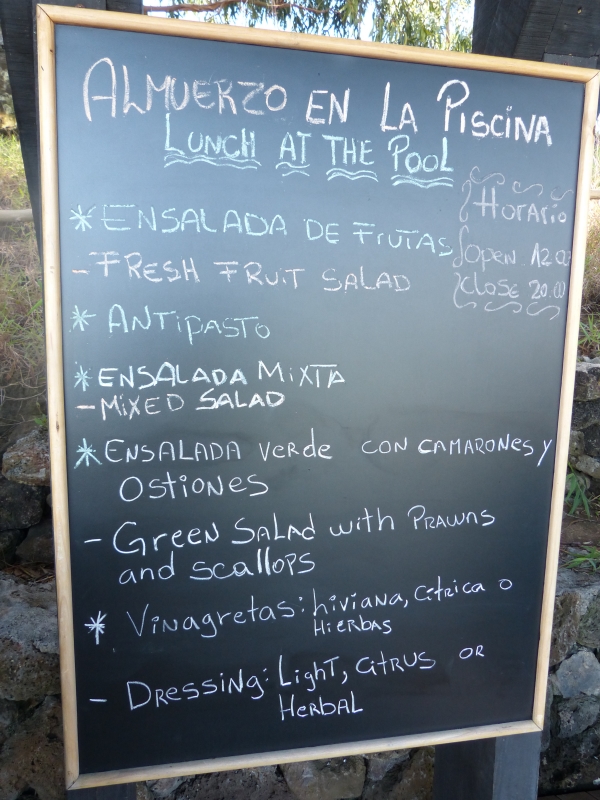 ALMUERZO EN LA PISCINA
LUNCH AT THE POOL
Horario
open 12.00
close 20.00
* ENSALADA DE FRUTAS
- FRESH FRUIT SALAD
* ANTIPASTO
* ENSALADA MIXTA
- MIXED SALAD
* ENSALADA verde CON CAMARONES y
OSTIONES
- Green SALAD with PRAWNS
and scallops
* Vinagretas: liviana, citrica o
HIERBAS
- DRESSING: LIGHT, CITRUS OR
HERBAL